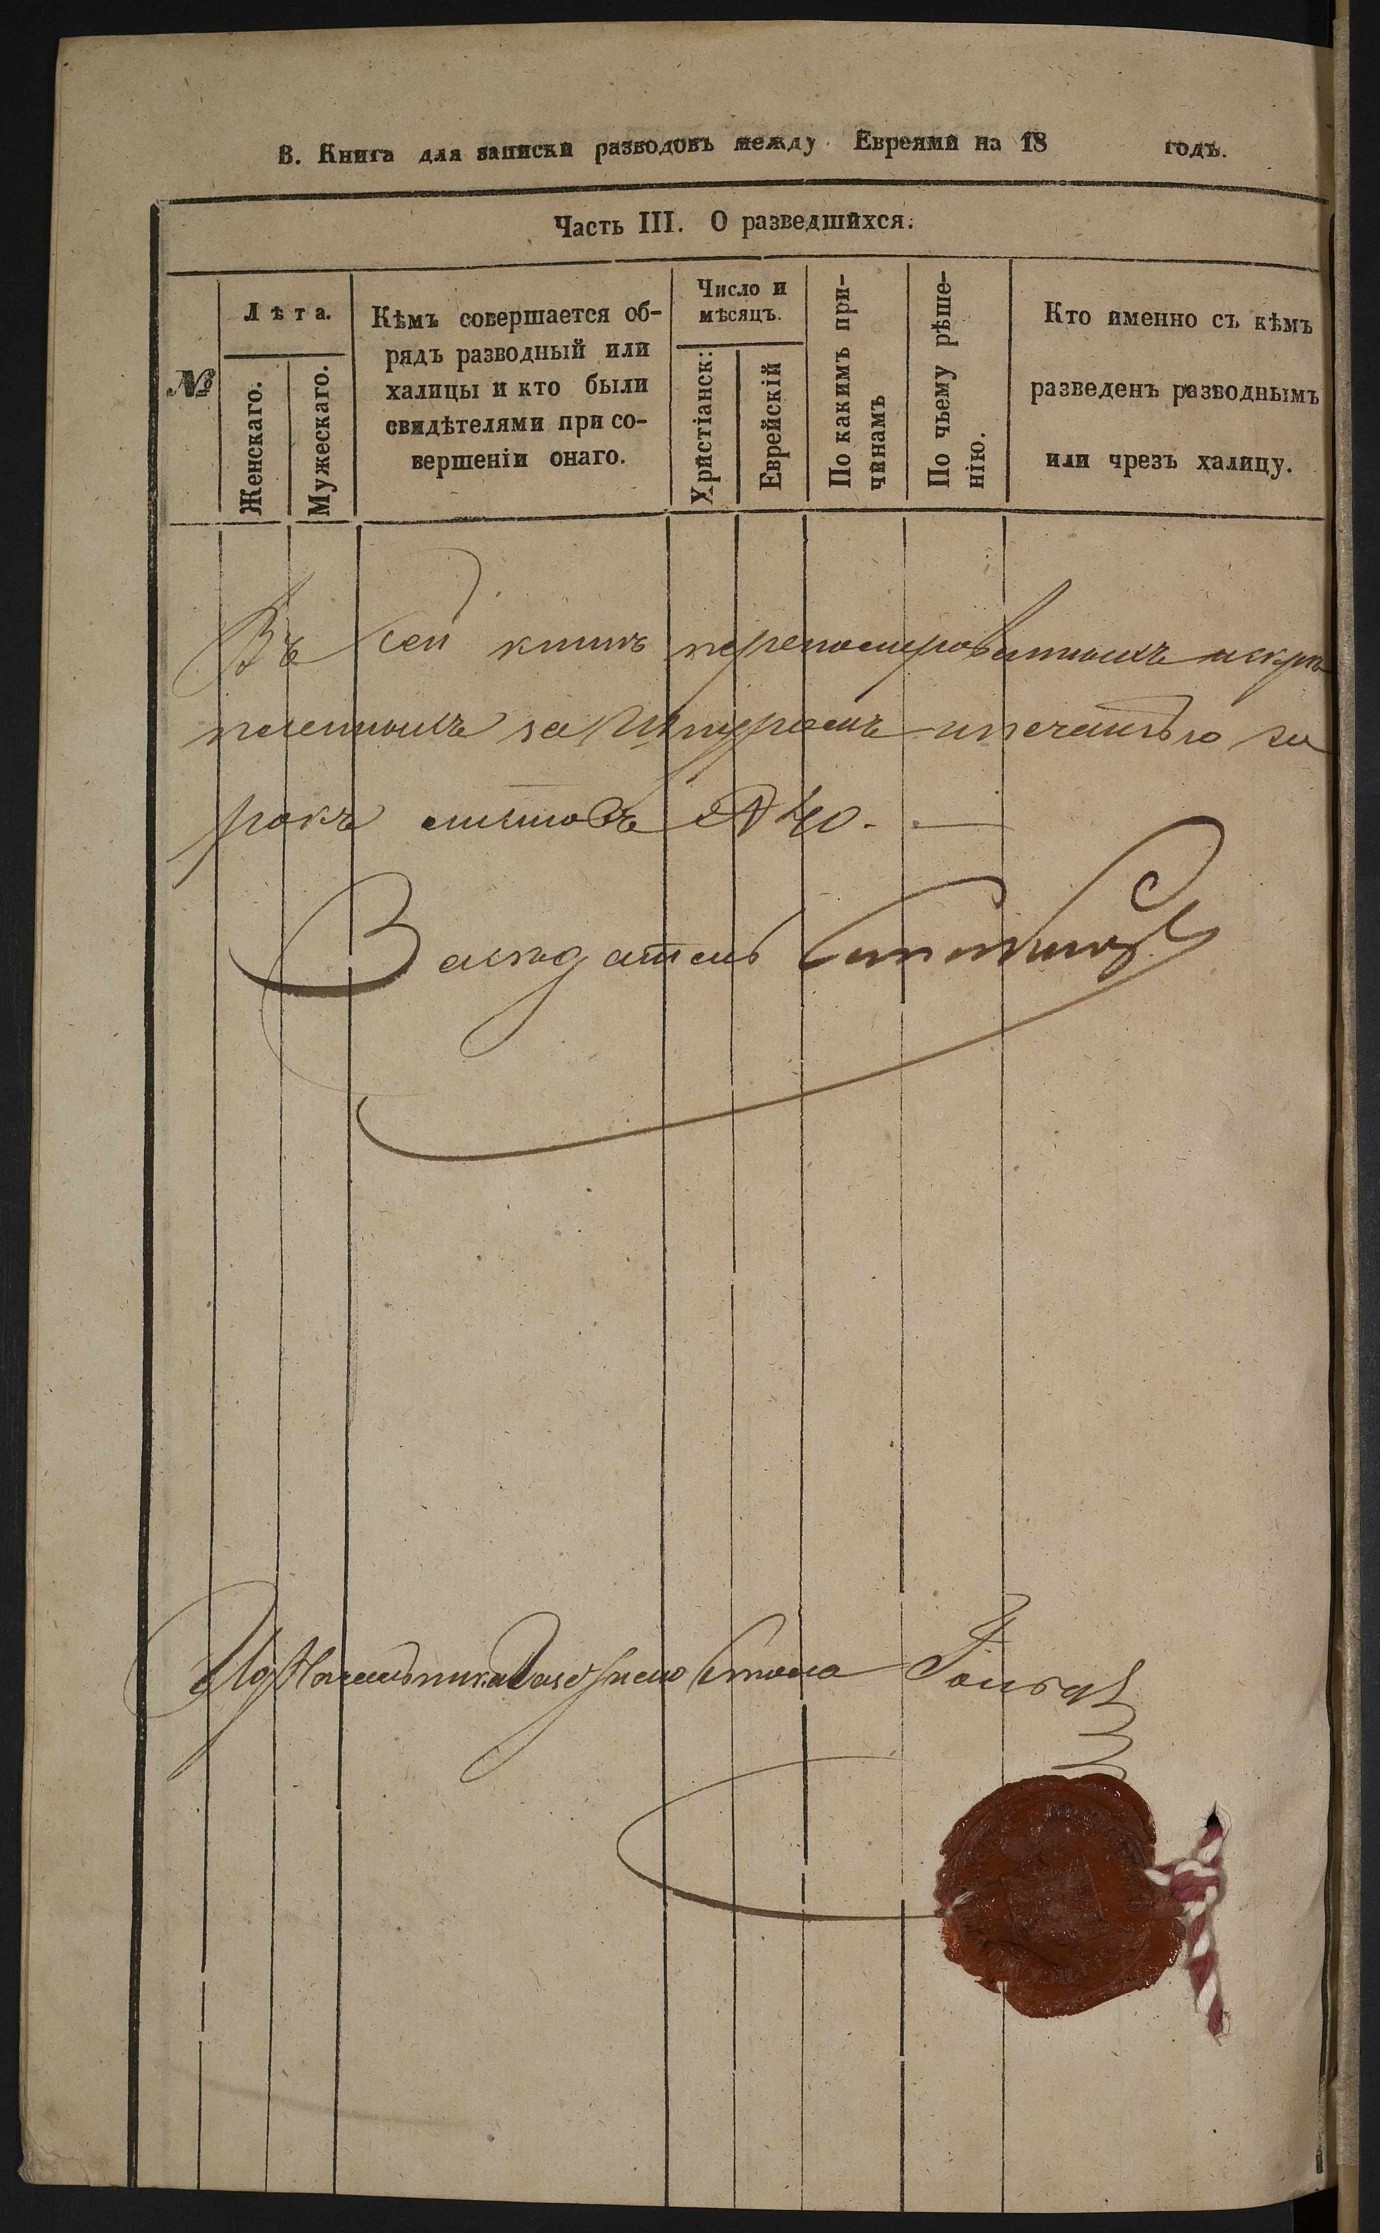 В. Книга для записки разводовъ между Евреями на 18 годъ.
Часть III. О разведшихся.
№
Лѣта.
Женскаго.
Мужескаго.
Кѣмъ совершается об-
рядъ разводный или
халицы и кто были
свидѣтелями при со-
вершеніи онаго.
Число и
мѣсяцъ.
Христіанск:
Еврейскій
По какимъ при-
чинамъ
По чьему рѣше-
нію.
Кто именно съ кѣмъ
разведенъ разводнымъ
или чрезъ халицу.
Въ сей книгѣ перенумерованныхъ и скрѣ
пленныхъ за шнуромъ и печатью со
рокъ листовъ № 40.
Засѣдатель
Ид Начальника Газетнаго Стола